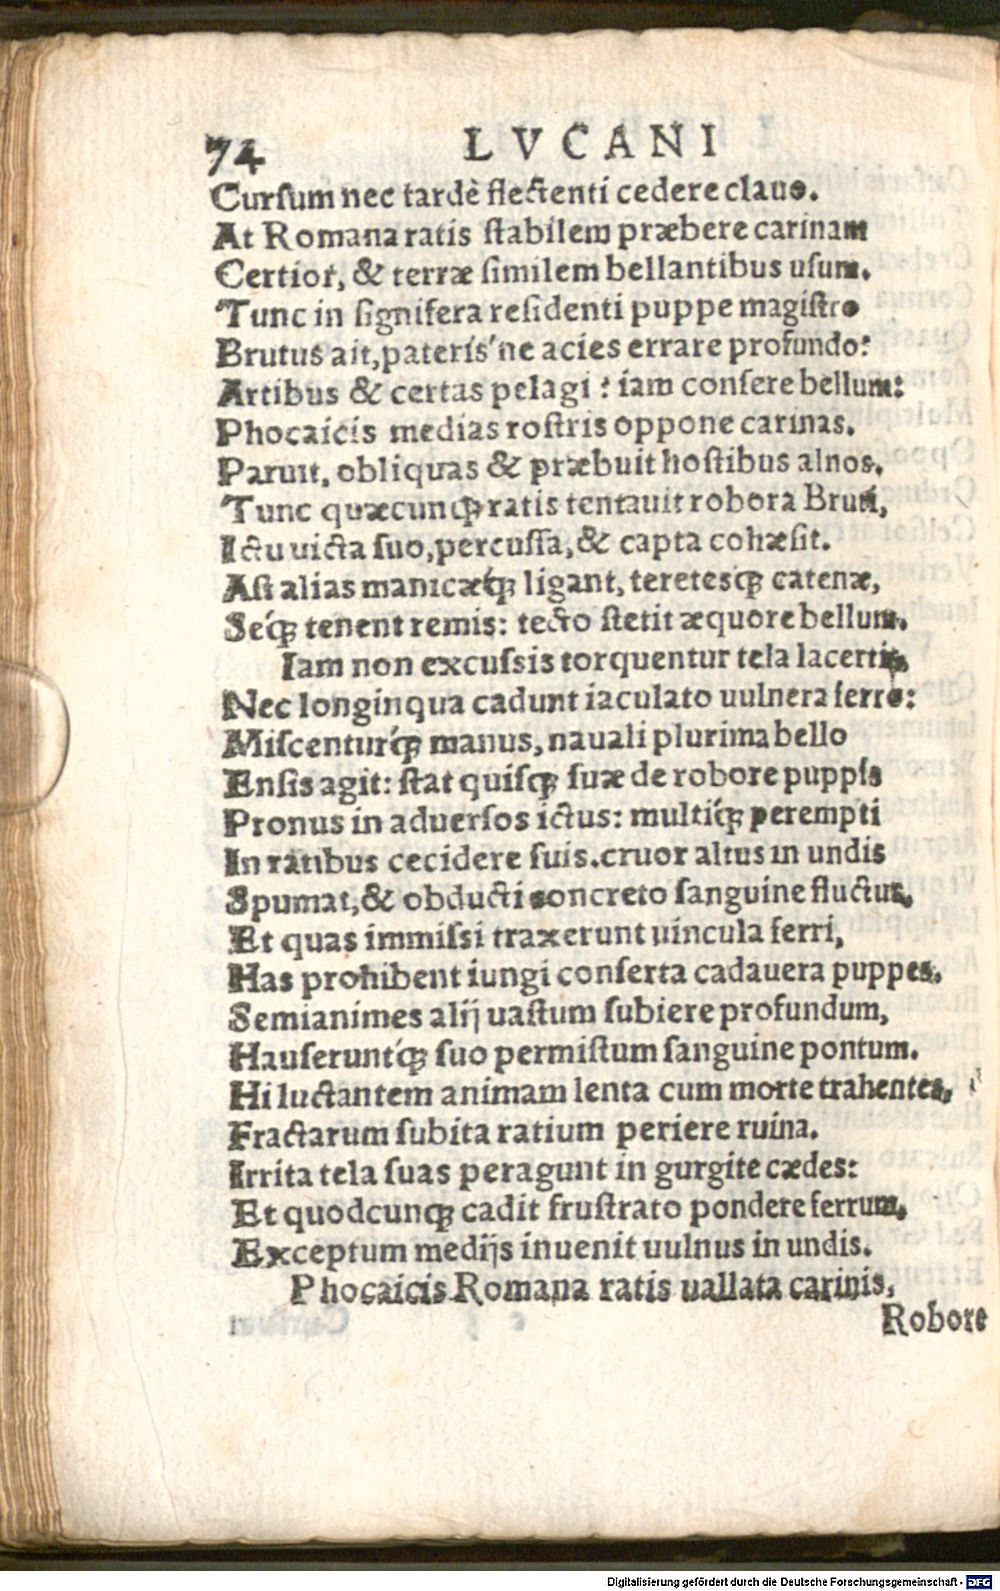 74 LVCANI
Curſum nec tardè flectenti cedere clauo.
At Romana ratis ſtabilem præbere carinam
Certior, & terræ ſimilem bellantibus uſum.
Tunc in ſignifera reſidenti puppe magiſtro
Brutus ait, pateris'ne acies errare profundo?
Artibus & certas pelagi? iam conſere bellum:
Phocaicis medias roſtris oppone carinas.
Paruit, obliquas & præbuit hoſtibus alnos.
Tunc quæcunq; ratis tentauit robora Bruti,
Ictu uicta ſuo, percuſſa, & capta cohæſit.
Aſt alias manicæq́; ligant, teretesq; catenæ,
Seq́; tenent remis: tecto ſtetit æquore bellum.
Iam non excuſsis torquentur tela lacertis,
Nec longinqua cadunt iaculato uulnera ferro:
Miſcenturq́; manus, nauali plurima bello
Enſis agit: ſtat quiſq; ſuæ de robore puppis
Pronus in aduerſos ictus: multiq́; perempti
In ratibus cecidere ſuis. cruor altus in undis
Spumat, & obducti concreto ſanguine fluctus,
Et quas immiſsi traxerunt uincula ferri,
Has prohibent iungi conſerta cadauera puppes.
Semianimes alij uaſtum ſubiere profundum,
Hauſeruntq́; ſuo permiſtum ſanguine pontum.
Hi luctantem animam lenta cum morte trahentes,
Fractarum ſubita ratium periere ruina.
Irrita tela ſuas peragunt in gurgite cædes:
Et quodcunq; cadit fruſtrato pondere ferrum,
Exceptum medijs inuenit uulnus in undis.
Phocaicis Romana ratis uallata carinis,
Robore
Digitalisierung gefördert durch die Deutsche Forschungsgemeinschaft - DFG